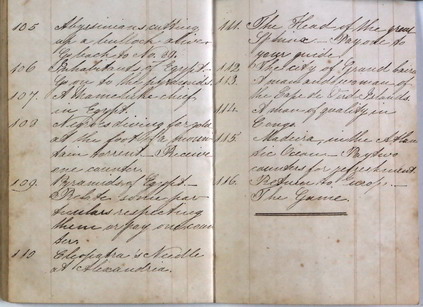 105 Abyssinians cutting
up a bullock alive
106 Inhabitants of Egypt
107. A Mameluke chief
in Egypt
108 Negroes diving for gold
at the foot of a moun-
tain torrent. Receive
one counter.
109. Pyramids of Egypt.
Relate some par-
ticulars respecting
them or pay one coun-
ter.
110 Cleopatra's Needle
at Alexandria.
111. The Head of the great
Sphinx. Pay one to
your guide
112. The city of Grand Cairo
113. A man and woman of
the Cape de Verd Islands.
114. A man of quality in
Congo
115. Madeira, in the Atlan-
tic Ocean. Pay two
counters for refreshment.
116. Return to
The Game.